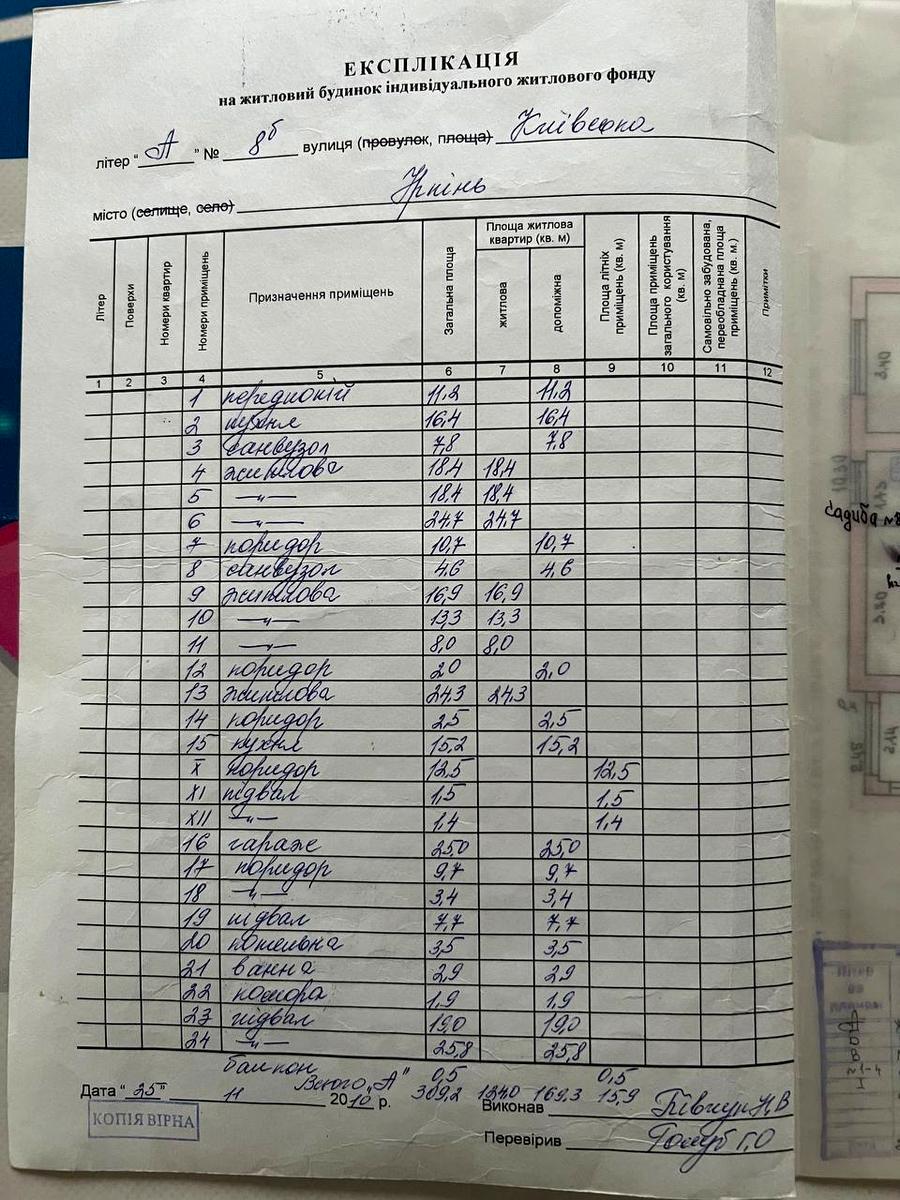 ЕКСПЛІКАЦІЯ
на житловий будинок індивідуального житлового фонду
літер " А " № 8б вулиця (провулок, площа) Київська
місто (селище, село) Ірпінь
Літер Поверхи Номери квартир Номери приміщень Призначення приміщень Загальна площа Площа житлова квартир (кв. м) житлова допоміжна Площа літніх приміщень (кв. м) Площа приміщень загального користування (кв. м) Самовільно забудована, переобладнана площа приміщень (кв. м.) Примітки
1 2 3 4 5 6 7 8 9 10 11 12
1 передпокій 11,2 11,2
2 кухня 16,4 16,4
3 санвузол 7,8 7,8
4 житлова 18,4 18,4
5 —"— 18,4 18,4
6 —"— 24,7 24,7
7 коридор 10,7 10,7
8 санвузол 4,6 4,6
9 житлова 16,9 16,9
10 —"— 13,3 13,3
11 —"— 8,0 8,0
12 коридор 2,0 2,0
13 житлова 24,3 24,3
14 коридор 2,5 2,5
15 кухня 15,2 15,2
X коридор 12,5 12,5
XI підвал 1,5 1,5
XII —"— 1,4 1,4
16 гараж 25,0 25,0
17 коридор 9,7 9,7
18 —"— 3,4 3,4
19 підвал 7,7 7,7
20 котельна 3,5 3,5
21 ванна 2,9 2,9
22 комора 1,9 1,9
23 підвал 19,0 19,0
24 —"— 25,8 25,8
балкон 0,5 0,5
Всього „А" 309,2 124,0 169,3 15,9
Дата " 25 " 11 2010 р.
Виконав Півчук Н,В
КОПІЯ ВІРНА
Перевірив Голуб Г,О
3.40
10.30
садиба №8
3.30
2.14
2.45